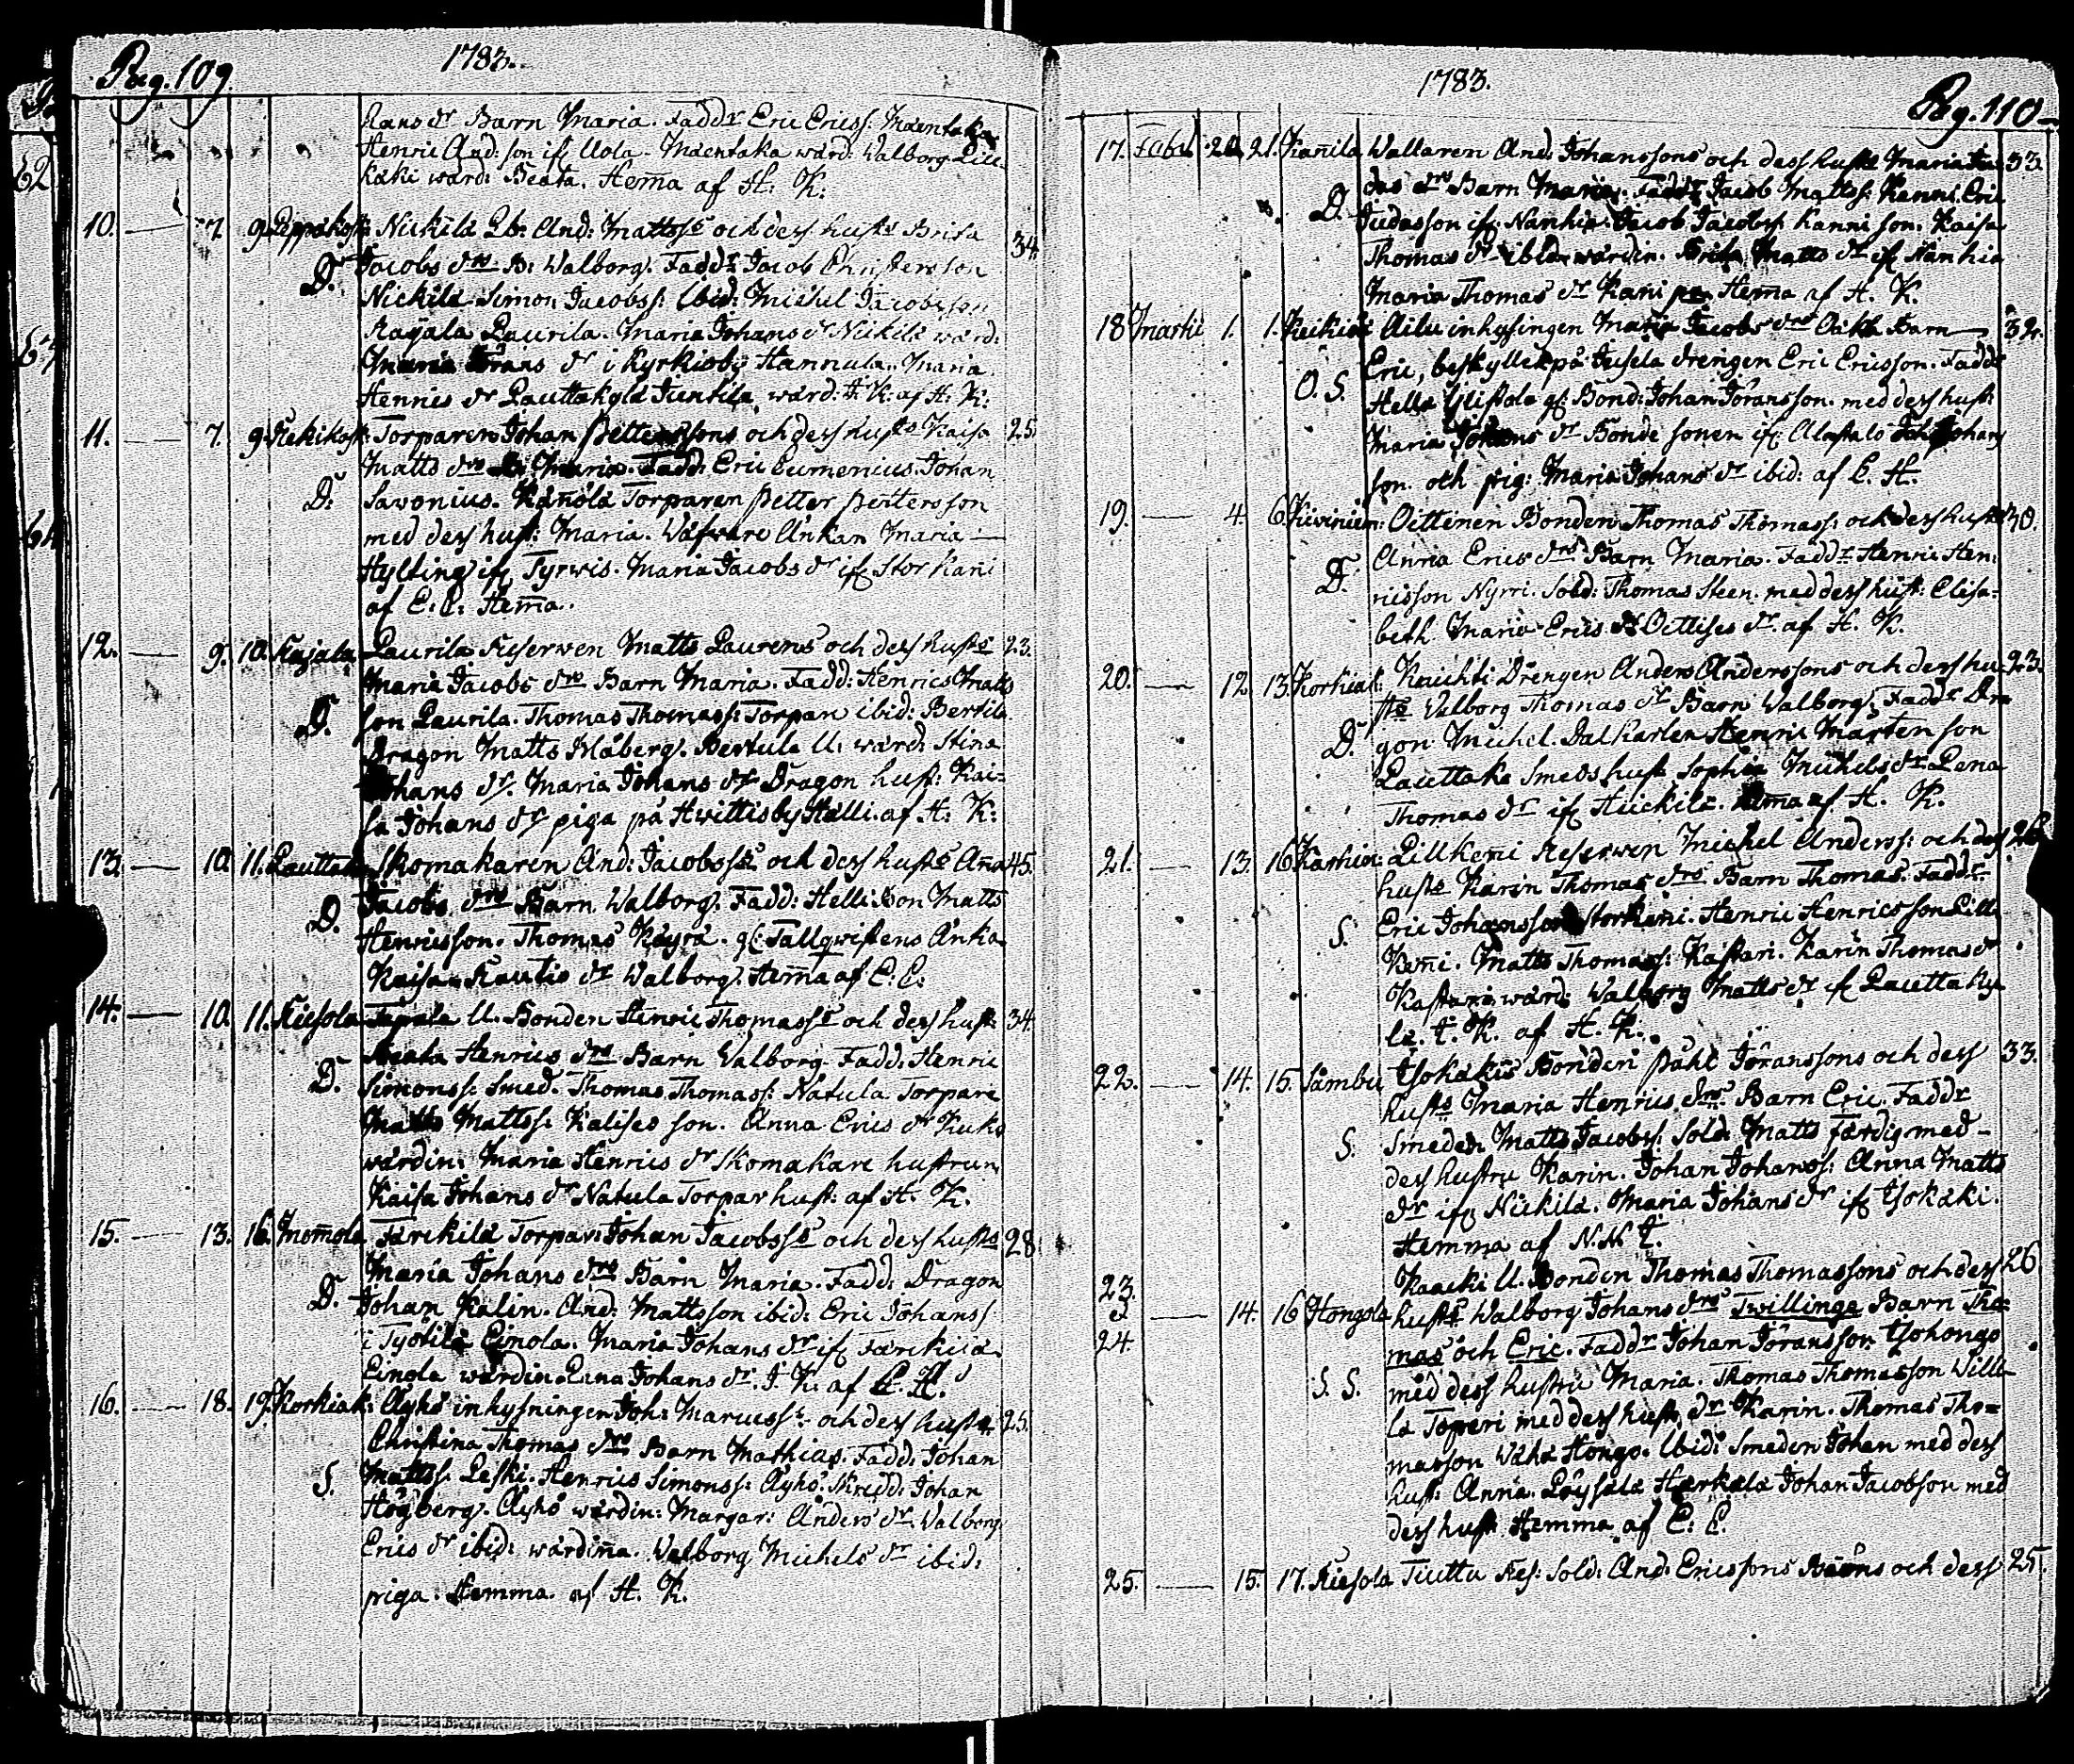 Pag. 109. 1783.
Hans dr Barn Maria. Faddr Eric Ericss:
Henric And: son if Uola. wärd: Walborg Lill
käki wärd: Beata. Hem̄a af H. K.
10. — 7. 9. Peppåkosk: Nickilä Lb: And: Mattssš och dess hustš Brita 34.
D. Jacobs drs B: Walborg. Faddr Jacob Christersson
Nickilä Simon Jacobss: ibid: Michel Jacobsson
Laurila. Maria Johans dr Nickilä wärd:
Maria dr i Kyrkioby Hannula. Maria
Henrics dr Lauttakylä Juntila wärd: I. K: af H: K:
11. — 7. 9. Torparen Johan Pettersons och dess hustš Kaisa 25.
Matts drs B: Maria. Fadd: Eric Eumenius. Johan
D. Savonius. Torparen Petter Pettersson
med dess hust: Maria. Wäfware Änkan Maria —
Hylting if Tyrwis. Maria Jacobs dr if Stor Kani
af E: E: Hem̄a.
12. — 9. 10. Laurila Reserwen Matts Laurens och dess hustš 23.
Maria Jacobs drs Barn Maria. Fadd: Henrics Matts
D. son Laurila. Thomas Thomass: Torpare ibid: Bertila
Dragon Matts Blåberg. Bertula U: wärd: Stina
Johans dr. Maria Johans dr Dragon hust: Kai-
sa Johans dr piga på Hwittisby Hälli. af H: K:
13. — 10. 11. Skomakaren And: Jacobssš och dess hustš Ana 45.
D. Jacobs drs Barn Walborg. Fadd: Helli Matts
Henricsson. Thomas Käyrä. gl: Tallqwistens Änka
Kaisa. dr Walborg. Hem̄a af E: E.
14. — 10. 11. Kiesola U. Bonden Henric Thomassš och dess hust: 34.
Beata Henrics drs Barn Walborg. Fadd: Henric
D. Simonss: Smed. Thomas Thomass: Natula Torpare
Matts Mattss: son. Anna Erics dr
wärdin: Maria Henrics dr Skomakare hustrun
Kaisa Johans dr Natula Torpar hust: af H. K.
15. — 13. 16. Mom̄ola Färckilä Torpar: Johan Jacobssš och dess hustš 28
Maria Johans drs Barn Maria. Fadd: Dragon
D. Johan Kalin. And: Mattsson ibid: Eric Johanss
i Einola. Maria Johans dr if Färckilä
Einola wärdin. Lena Johans dr. I. K. af E. E.
16. — 18. 19. Korkiak: Äyhö inhysningen Joh: Marcuss: och dess hustš 25.
Christina Thomas drs Barn Mathias. Fadd: Johan
S. Mattss. Henrics Simonss: Äyhö. Skredd: Johan
Högberg. Äyhö wärdin: Margar: Anders dr Walborg
Erics dr ibid: wärdin̄a. Walborg Michels dr ibid:
piga. Hemma af H. K.
1783. Pag. 110.
17. Febr 20 21. Kan̄ila Wallaren And: Johanssons och dess hustš Maria Ju= 33.
das drs Barn Maria. Faddr Jacob Mattss: Kenni. Eric
D. Judasson if Nanhia. Jacob Jacobss Kanni son. Kaisa
Thomas dr ibid: wärdin. Brita Matts dr if Nanhia
Maria Thomas dr Hem̄a af H. K.
18 Martii 1. 1. inhysingen Maria Jacobs drs Oäkta Barn — 32.
Eric, beskyllt på drengen Eric Ericsson. Faddr
O. S. gl: Bond: Johan Jöransson. med dess hust:
Maria Johans dr Bonde sonen if Alastalo Johans
son. och pig: Maria Johans dr ibid: af E. H.
19. — 4. 6. Kivinien: Oittinen Bonden Thomas Thomass: och dess hustš 30.
Anna Erics drs Barn Maria. Faddr Henric Hen:
D. ricsson Nyrri. Sold: Thomas Steen. med dess hust: Elisa=
beth Maria Erics dr dr. af H. K.
20. — 12. 13. Korkiak: Knichti Drengen Anders Anderssons och dess hu 23.
stš Walborg Thomas dr Barn Walborg. Faddr Dra
D. gon Michel. Dalkarlen Henric Mårtenson
Lauttaka Smeds hust Sophia Michels dr Lena
Thomas dr if Nickilä. Hem̄a af H. K.
21. — 13. 16 Karhia: Lillkeni Reserwen Michel Anderss: och dess 26
hustš Karin Thomas drs Barn Thomas. Faddr
S. Eric Johansson Storkeni. Henric Henricsson Lill
Ken̄i. Matts Thomass: Kastari. Karin Thomas dr
Kastari wärd: Walborg Matts dr if Lautta Ky
lä. I. K. af H. K.
22. — 14. 15. Sambu Isokäkis Bonden Påhl Jöranssons och dess 33.
hustš Maria Henrics drs Barn Eric. Faddr
S. Smeden Matts Jacobss. Sold: Matts Färdig med —
dess hustru Karin. Johan Johanss: Anna Matts
dr if Nickilä. Maria Johans dr if Isokäki.
Hemma af N. N. I.
23. Kaacki U. Bonden Thomas Thomassons och dess 26
& — 14. 16 Hongola hustš Walborg Johans drs Twillinga Barn Tho=
24. mas och Eric. Faddr Johan Jöransson Isohongo
S. S. med dess hustru Maria. Thomas Thomasson Wille
la Toperi med dess hust: dr Karin. Thomas Tho=
masson Wähä Hongo. Ibid: Smeden Johan med dess
hust: Anna. Löysälä Johan Jacobson med
dess hust: Hemma af E: E.
25. — 15. 17. Kiesola Tiuttu Res: Sold: And: Ericssons och dess 25.